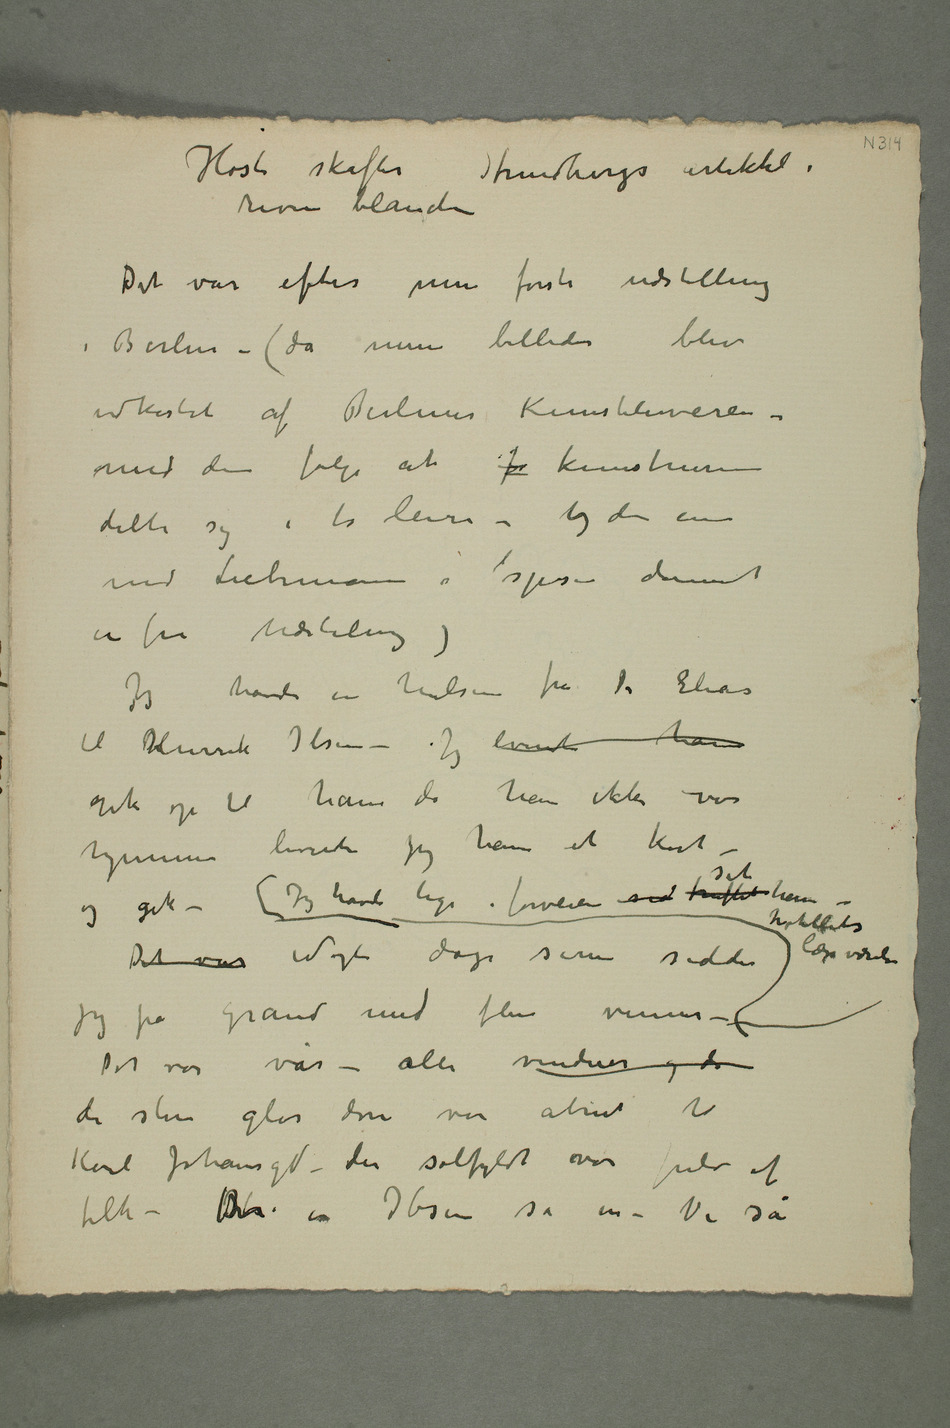 N 314
Høste skafter Strindbergs artikkel i
revue blanche
Det var efter min første udstilling
i Berlin – (da mine billeder blev
udkastet af Berliner Kunstlerverein –
med den følge at f kunstnerne
delte sig i to leire – og den ene
med Liebermann i spisen dannet
en fri Udstilling)
Jeg havde en hilsen fra Dr Elias
til Henrik Ibsen – Jeg leverte ham
gik op til ham da han ikke var
hjemme leverte jeg ham et kort –
og gik – (Jeg havde lige i forveien sed truffet set ham –
hotellets
læseværelse)
Det var Nogle dage senere sidder
jeg på Grand med flere venner –
Det var vår – alle vinduer og de
de store glas døre var åbnet til
Karl Johansgd – der solfyldt var fuld af
folk – Ibsen så ind – Vi så